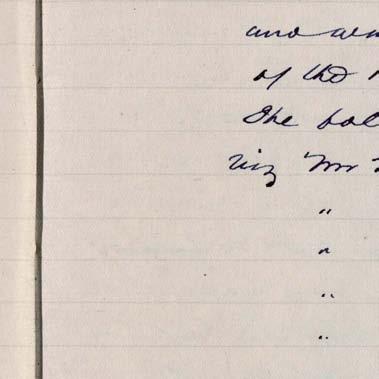 and
of the
The fol
viz Mr
"
"
"
"